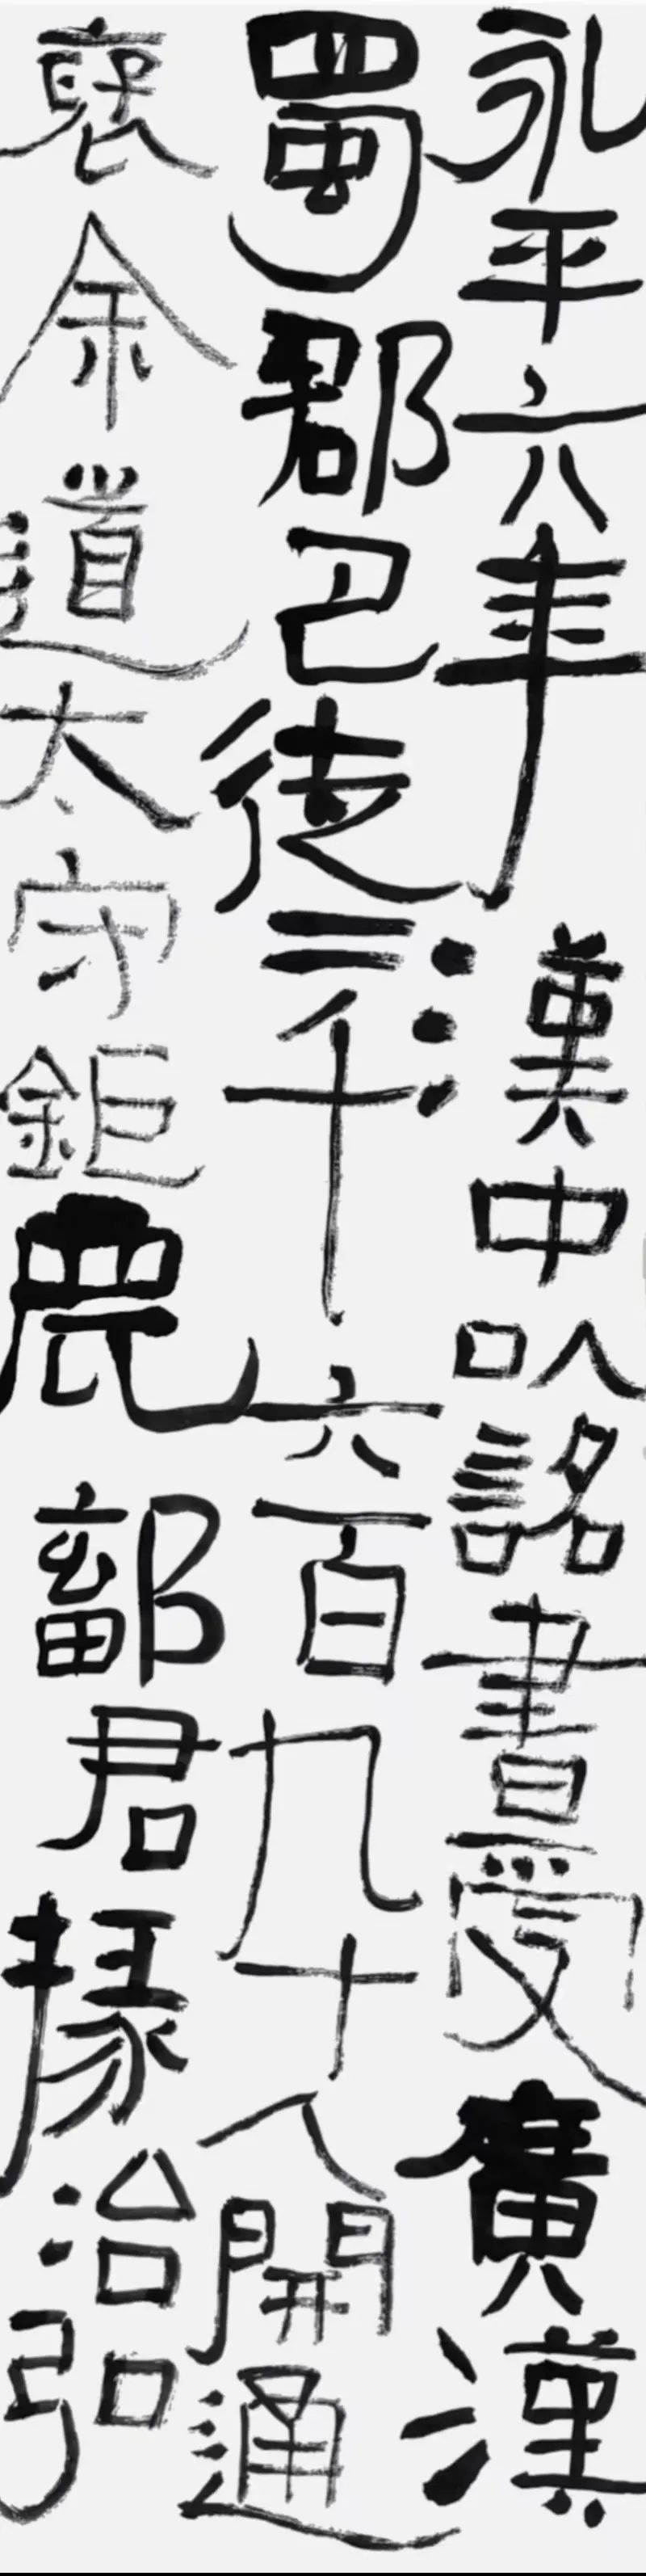 永平六年漢中以詔書受廣漢
蜀郡巴徒二千六百九十人開通
褒余道太守鉅鹿鄐君掾治弘